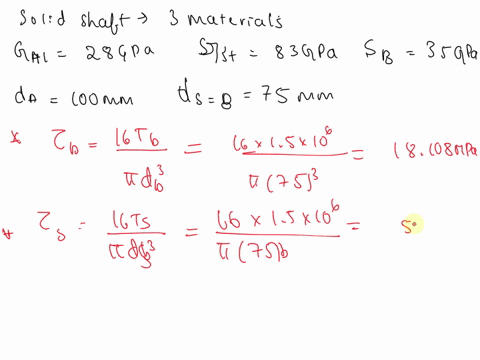 Solid shaft → 3 materials
G_Al = 28GPa St = 83GPa S_B = 35GPa
d_A = 100mm d_S=B = 75 mm
* τ_b = 16T_b / πd_b^3 = 16 × 1.5 × 10^6 / π(75)^3 = 18.108MPa
* τ_s = 16T_s / πd^3 = 16 × 1.5 × 10^6 / π(75) = 5